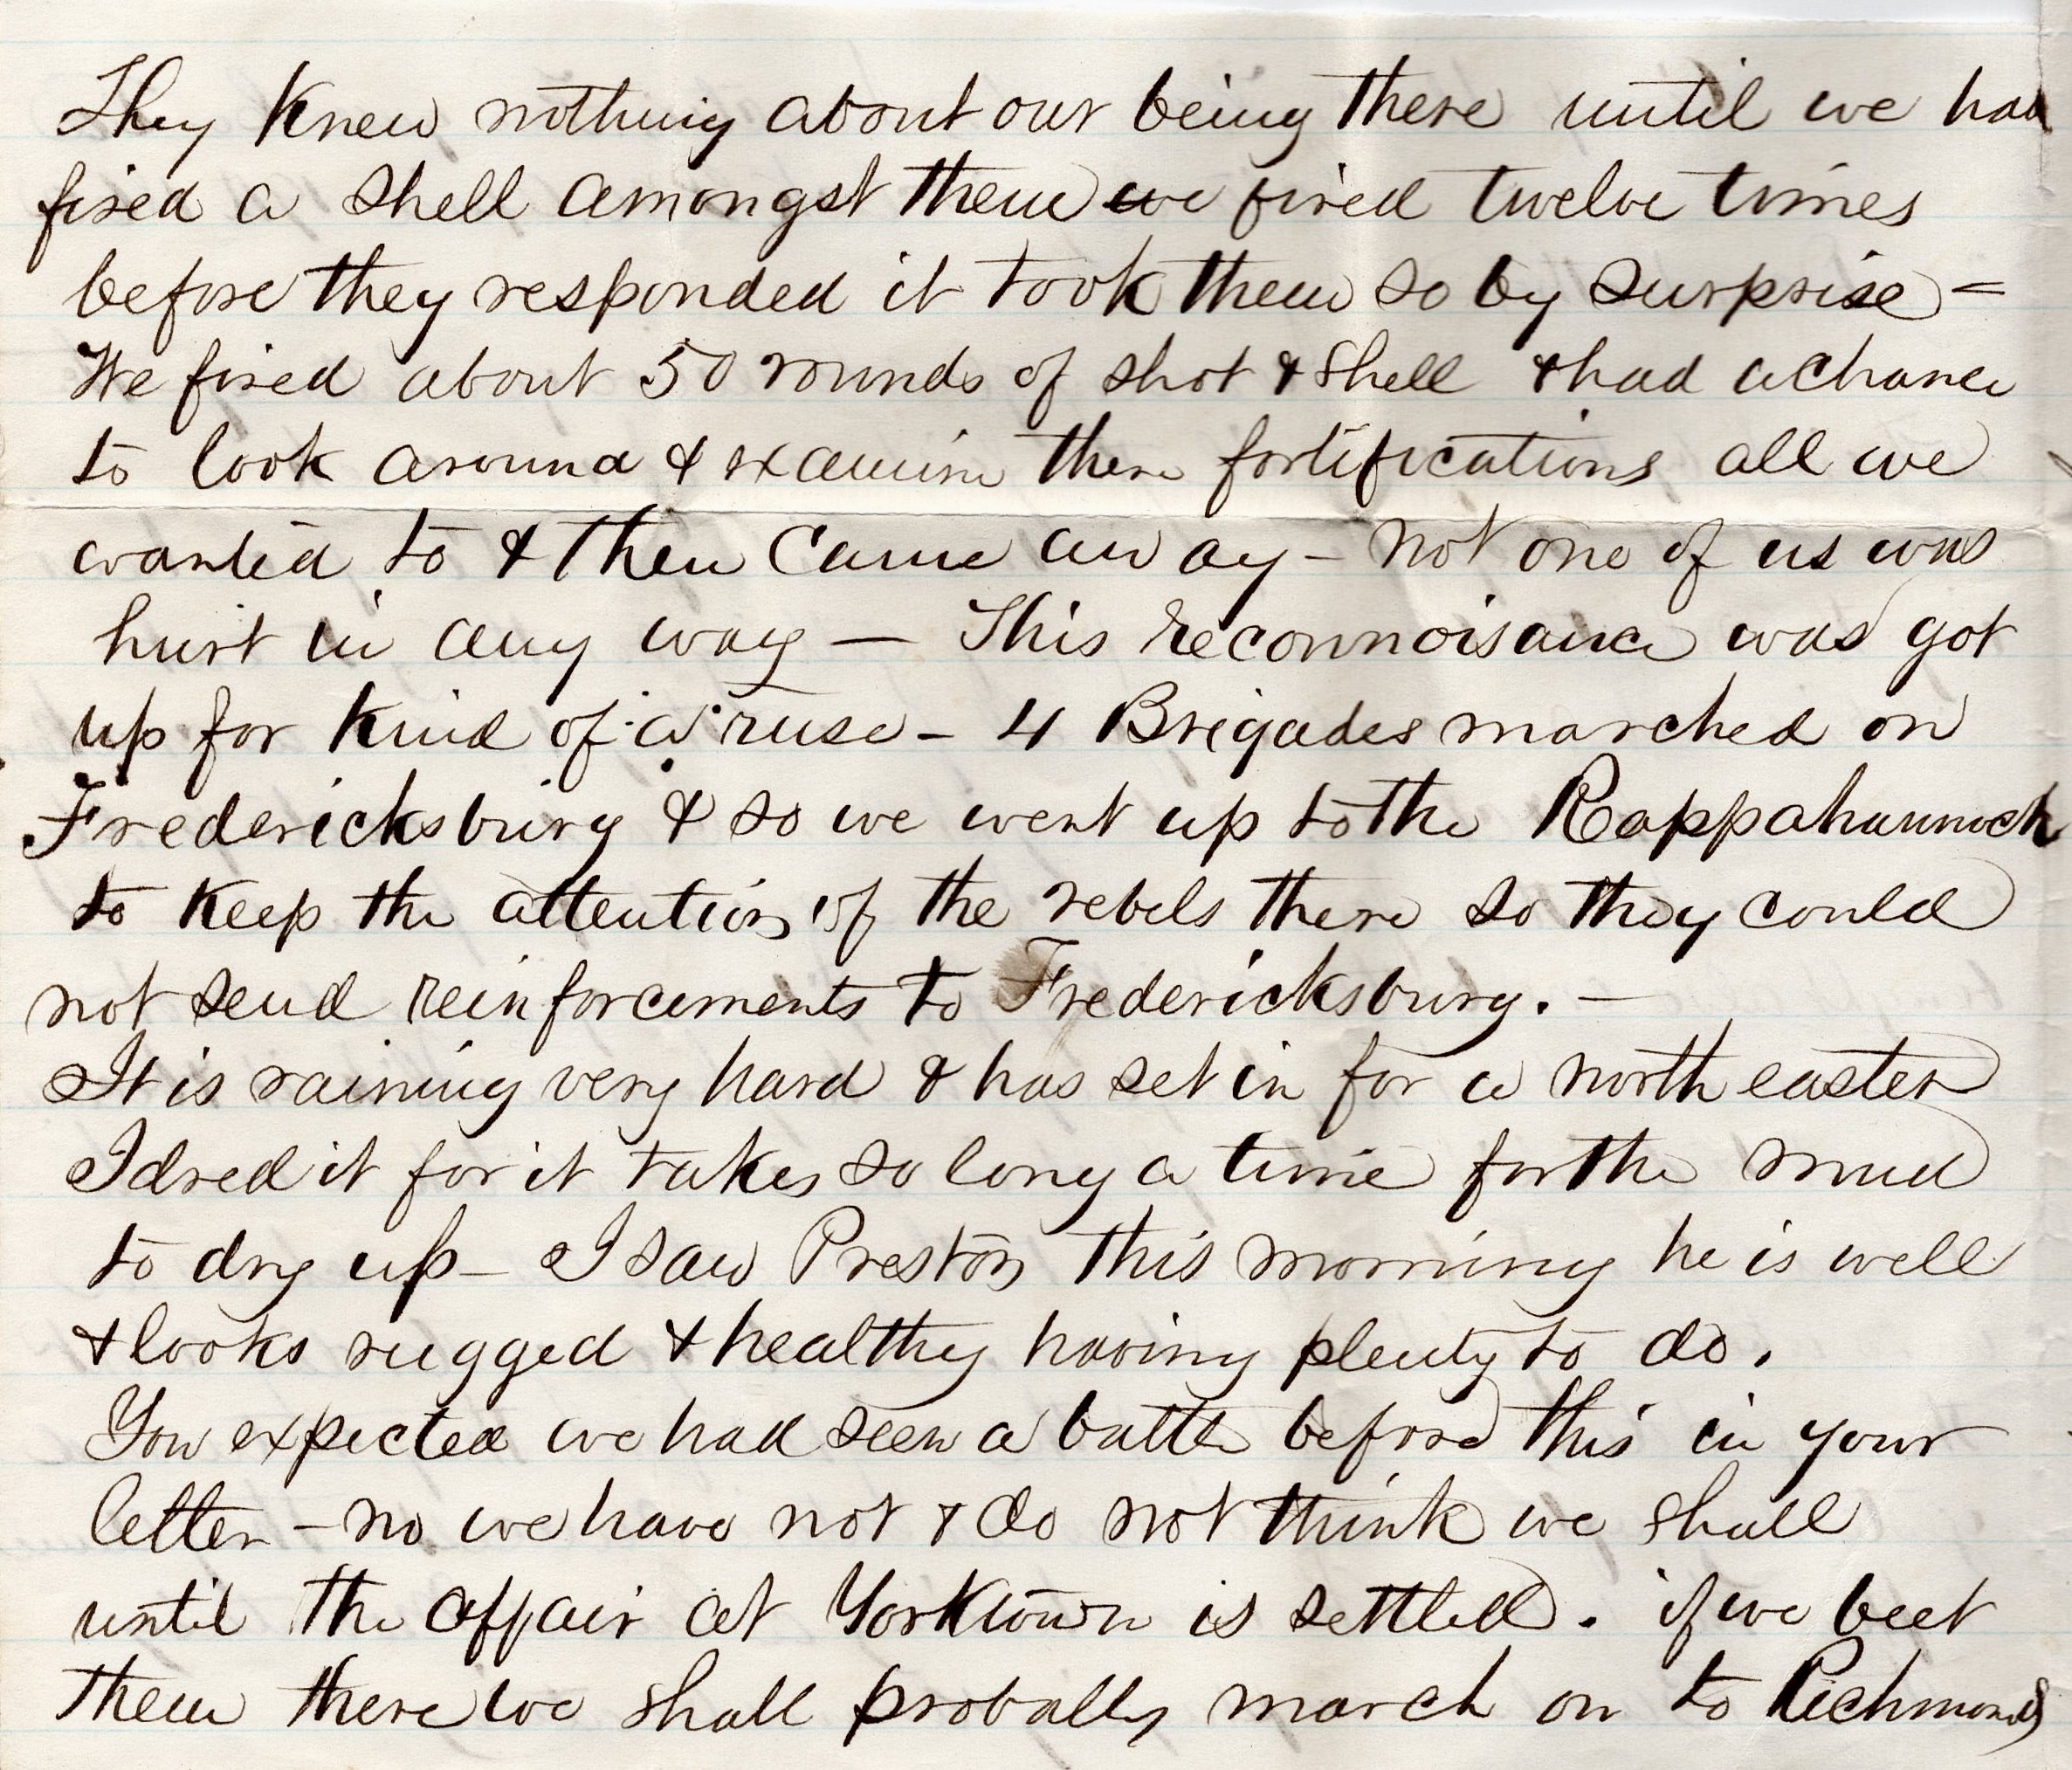 They knew nothing about our being there until we had
fired a shell amongst them we fired twelve times
before they responded it took them so by surprise –
We fired about 50 rounds of shot & shell & had a chance
to look around & examine there fortifications all we
wanted to & then came away – not one of us was
hurt in any way — This reconnoisance was got
up for kind of a ruse – 4 Brigades marched on
Fredericksburg & so we went up to the Rappahannock
to keep the attention of the rebels there so they could
not send reinforcements to Fredericksburg. —
It is raining very hard & has set in for a north easter
I dred it for it takes so long a time for the mud
to dry up – I saw Preston this morning he is well
& looks rugged & healthy having plenty to do.
You expected we had seen a battle before this in your
letter – no we have not & do not think we shall
until the affair at Yorktown is settled. if we beet
them there we shall probally march on to Richmond